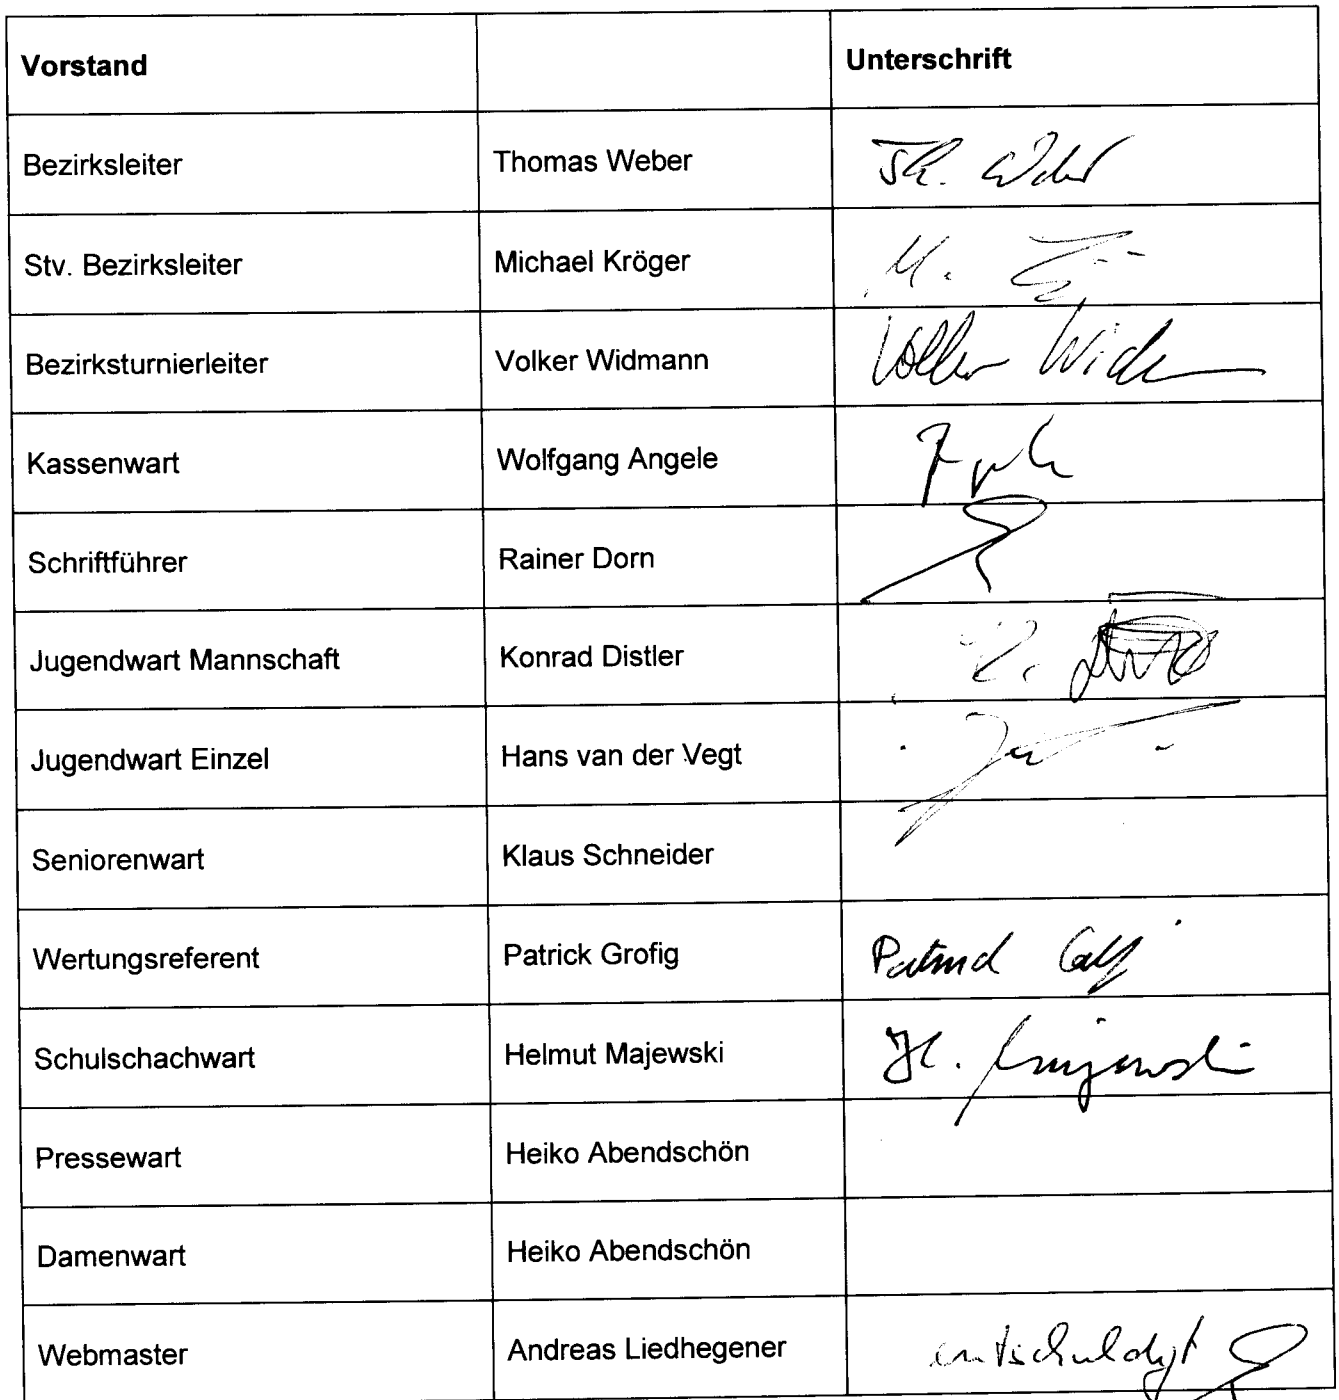 Vorstand Unterschrift
Bezirksleiter Thomas Weber Th. Weber
Stv. Bezirksleiter Michael Kröger M.
Bezirksturnierleiter Volker Widmann Volker Widm
Kassenwart Wolfgang Angele
Schriftführer Rainer Dorn
Jugendwart Mannschaft Konrad Distler
Jugendwart Einzel Hans van der Vegt
Seniorenwart Klaus Schneider
Wertungsreferent Patrick Grofig Patrick
Schulschachwart Helmut Majewski H. Majewski
Pressewart Heiko Abendschön
Damenwart Heiko Abendschön
Webmaster Andreas Liedhegener entschuldigt